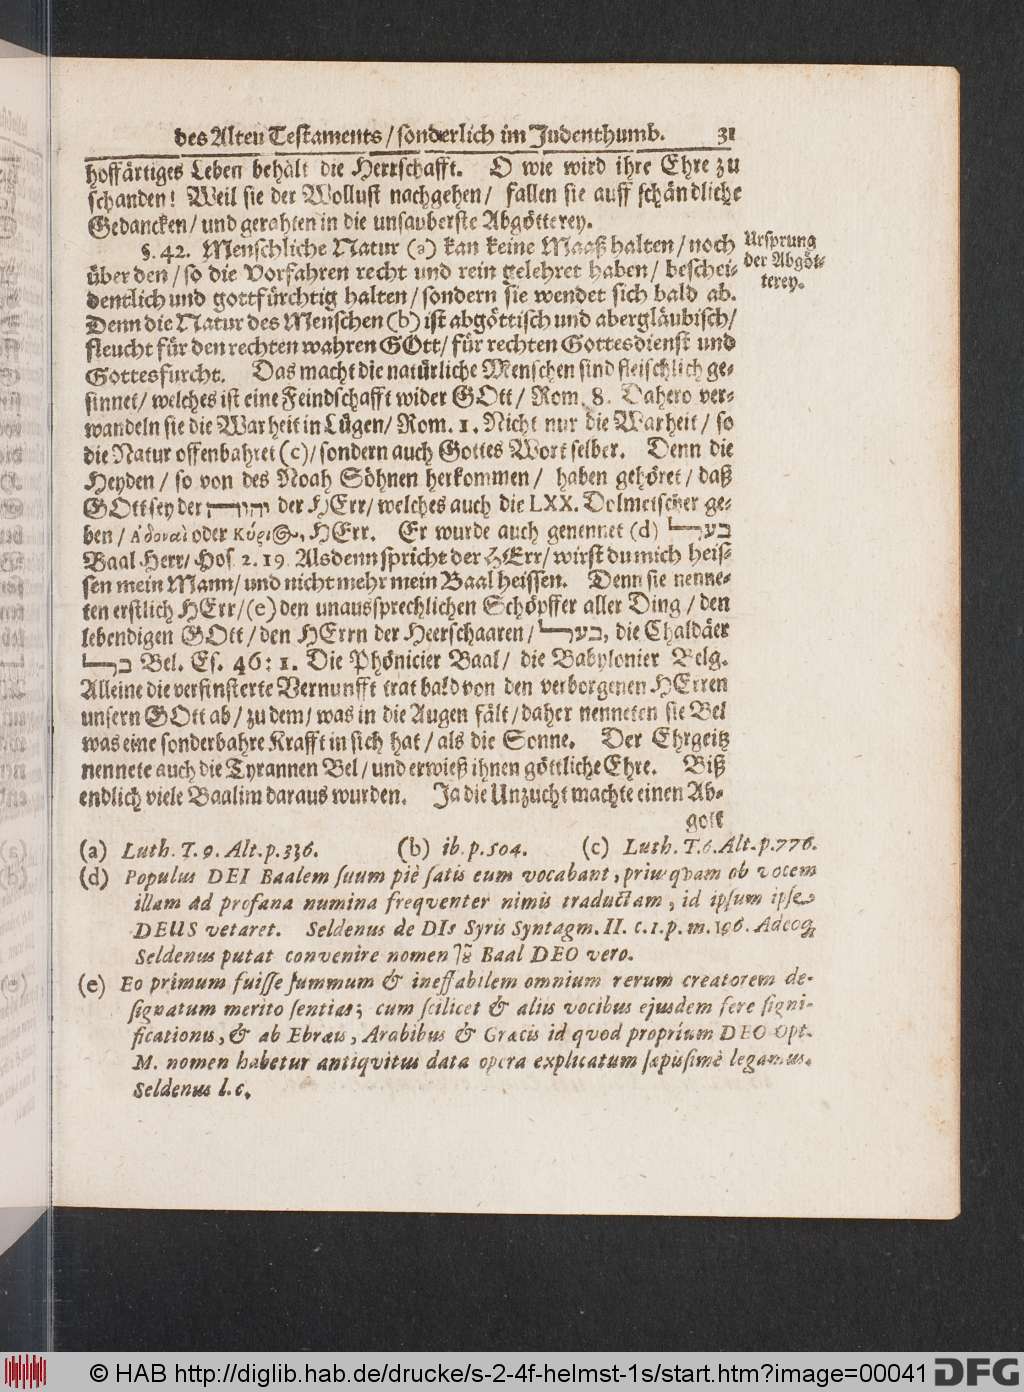 des Alten Testaments / sonderlich im Judenthumb. 31
hoffärtiges Leben behält die Herrschafft. O wie wird ihre Ehre zu
schanden! Weil sie der Wollust nachgehen / fallen sie auff schändliche
Gedancken / und gerahten in die unsauberste Abgötterey.
§. 42. Menschliche Natur (a) kan keine Maaß halten / noch
Ursprung
der Abgöt-
terey.
über den / so die Vorfahren recht und rein gelehret haben / beschei-
dentlich und gottfürchtig halten / sondern sie wendet sich bald ab.
Denn die Natur des Menschen (b) ist abgöttisch und abergläubisch /
fleucht für den rechten wahren GOtt / für rechten Gottesdienst und
Gottesfurcht. Das macht die natürliche Menschen sind fleischlich ge-
sinnet / welches ist eine Feindschafft wider GOtt / Rom. 8. Dahero ver-
wandeln sie die Warheit in Lügen / Rom. 1. Nicht nur die Warheit / so
die Natur offenbahret (c) / sondern auch Gottes Wort selber. Denn die
Heyden / so von des Noah Söhnen herkommen / haben gehöret / daß
GOtt sey der der HErr / welches auch die LXX. Dolmetscher ge-
ben / Ἀδοναὶ oder Κύριος, HErr. Er wurde auch genennet (d) בעל
Baal Herr / Hos. 2. 19. Alsdenn spricht der HErr / wirst du mich heis-
sen mein Mann / und nicht mehr mein Baal heissen. Denn sie nenne-
ten erstlich HErr / (e) den unaussprechlichen Schöpffer aller Ding / den
lebendigen GOtt / den HErrn der Heerschaaren / בעל, die Chaldäer
בל Bel. Es. 46: 1. Die Phönicier Baal / die Babylonier Belg.
Alleine die verfinsterte Vernunfft trat bald von den verborgenen HErren
unsern GOtt ab / zu dem / was in die Augen fält / daher nenneten sie Bel
was eine sonderbahre Krafft in sich hat / als die Sonne. Der Ehrgeitz
nennete auch die Tyrannen Bel / und erwieß ihnen göttliche Ehre. Biß
endlich viele Baalim daraus wurden. Ja die Unzucht machte einen Ab-
gott
(a) Luth. T. 9. Alt. p. 336. (b) ib. p. 504. (c) Luth. T. 6. Alt. p. 776.
(d) Populus DEI Baalem suum piè satis eum vocabant, priusqvam ob vocem
illam ad profana numina freqventer nimis traductam, id ipsum ipse
DEUS vetaret. Seldenus de DIs Syris Syntagm. II. c. 1. p. m. 196. Adeoq;
Seldenus putat convenire nomen Baal DEO vero.
(e) Eo primum fuisse summum & ineffabilem omnium rerum creatorem de-
signatum merito sentias; cum scilicet & aliis vocibus ejusdem fere signi-
ficationis, & ab Ebræis, Arabibus & Græcis id qvod proprium DEO Opt.
M. nomen habetur antiqvitus data opera explicatum sæpissimè legamus.
Seldenus l. c.
© HAB http://diglib.hab.de/drucke/s-2-4f-helmst-1s/start.htm?image=00041 DFG